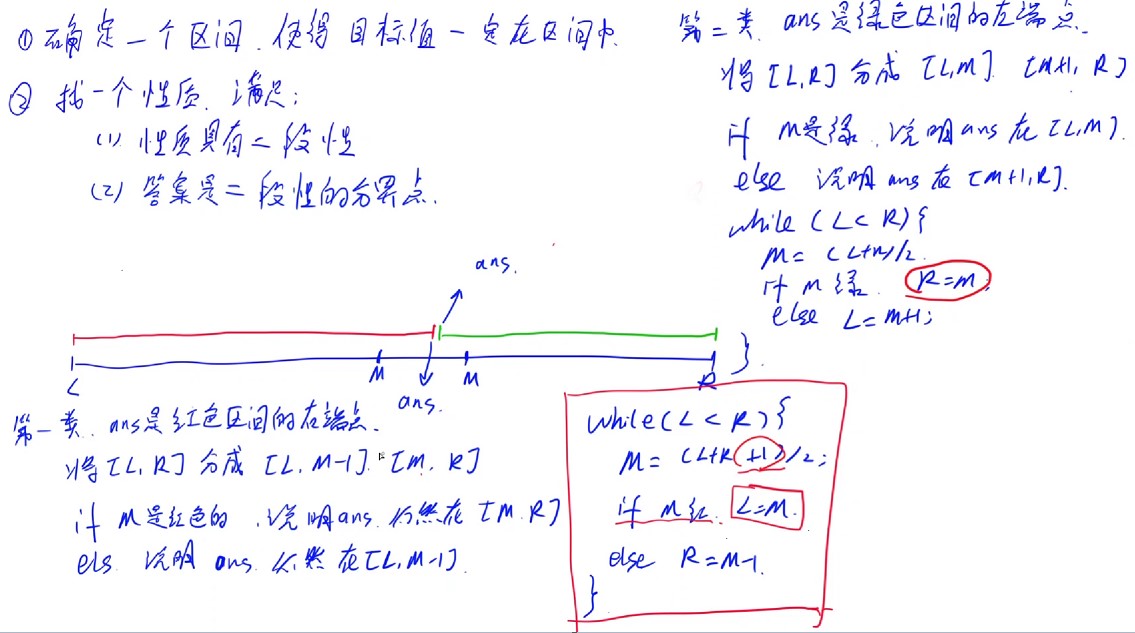 ① 确定一个区间，使得目标值一定在区间中
② 找一个性质，满足：
(1) 性质具有二段性
(2) 答案是二段性的分界点.
ans.
L
M
M
R
ans.
第一类. ans是红色区间的右端点.
将[L,R]分成[L,M-1].[M,R]
if M是红色的,说明ans仍然在[M.R]
els. 说明ans.仍然在[L,M-1].
while(L<R){
M=(L+R+1)/2;
if M红. L=M.
else R=M-1.
}
第二类 ans是绿色区间的左端点.
将[L,R]分成[L,M].[M+1,R]
if M是绿.说明ans在[L,M].
else 说明ans在[M+1,R].
while(L<R){
M=(L+R)/2.
if M绿. R=M;
else L=M+1;
}.